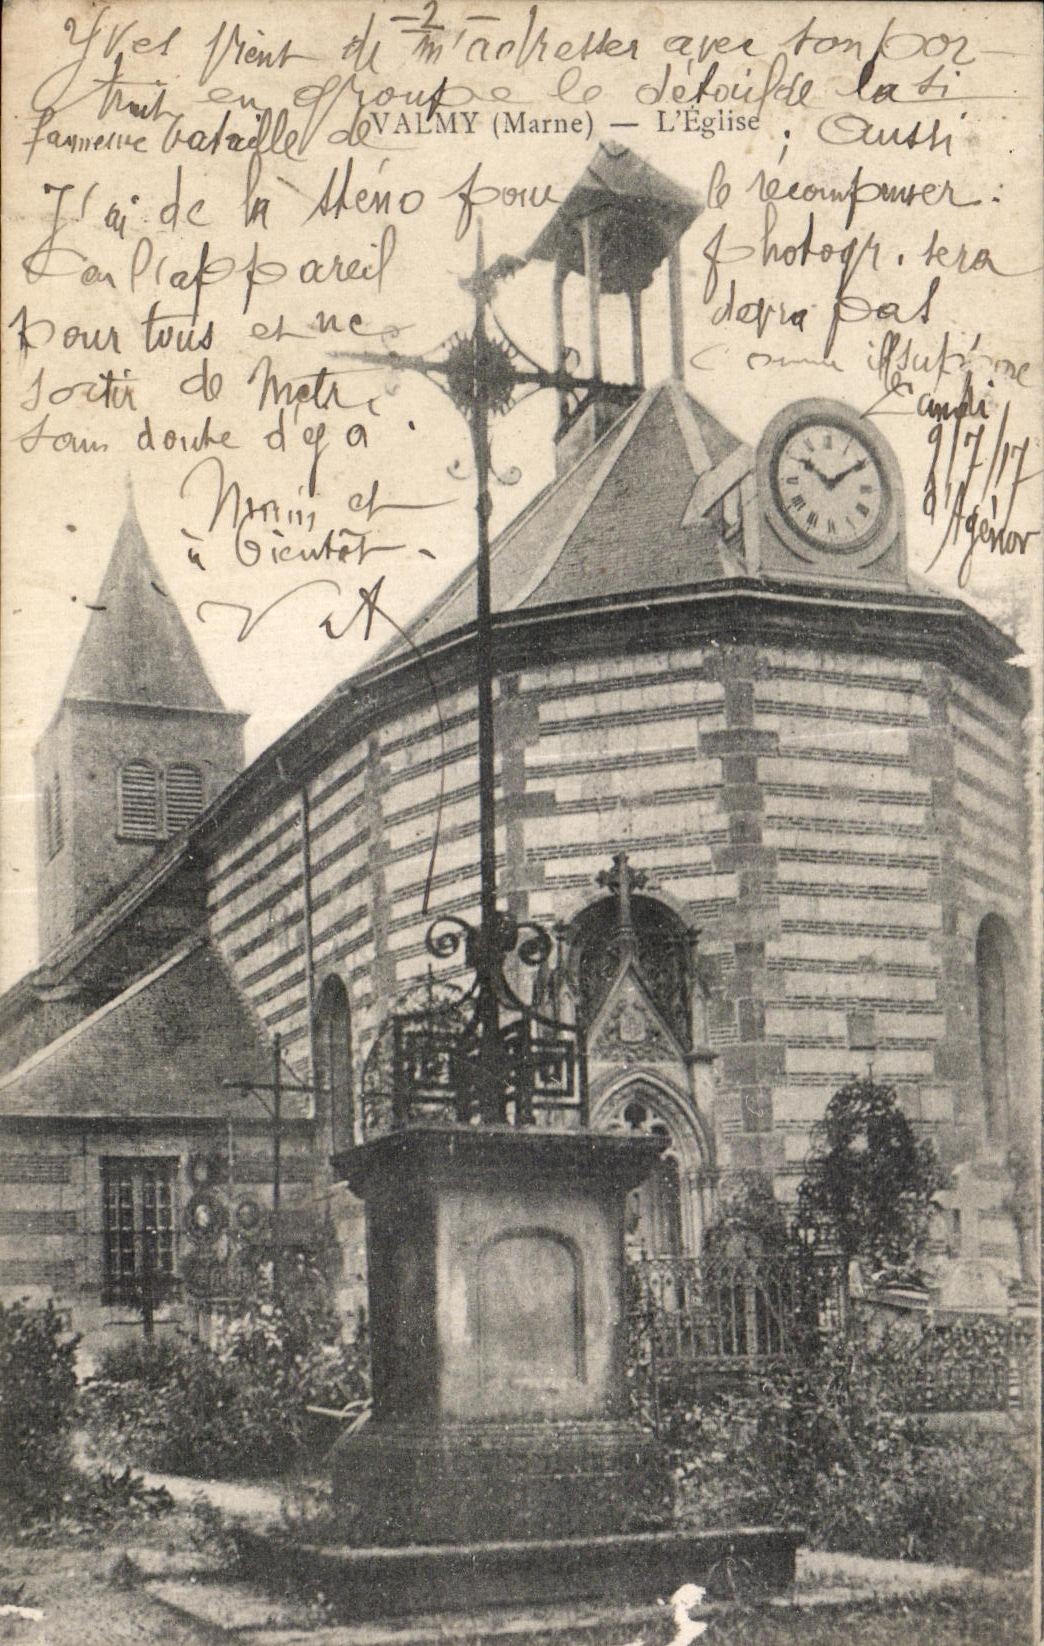 - 2 -
Yves vient de m'adresser avec son por-
trait en groupe le détail de la si
fameuse bataille de VALMY (Marne) — L'Église ; Aussi
J'ai de la sténo pour le récompenser :
Car l'appareil photogr. sera
pour tous et ne devra pas
sortir de Metz, comme il suppose
sans doute déjà.
Lundi
9/7/17
d'Agénor
et
à bientôt.